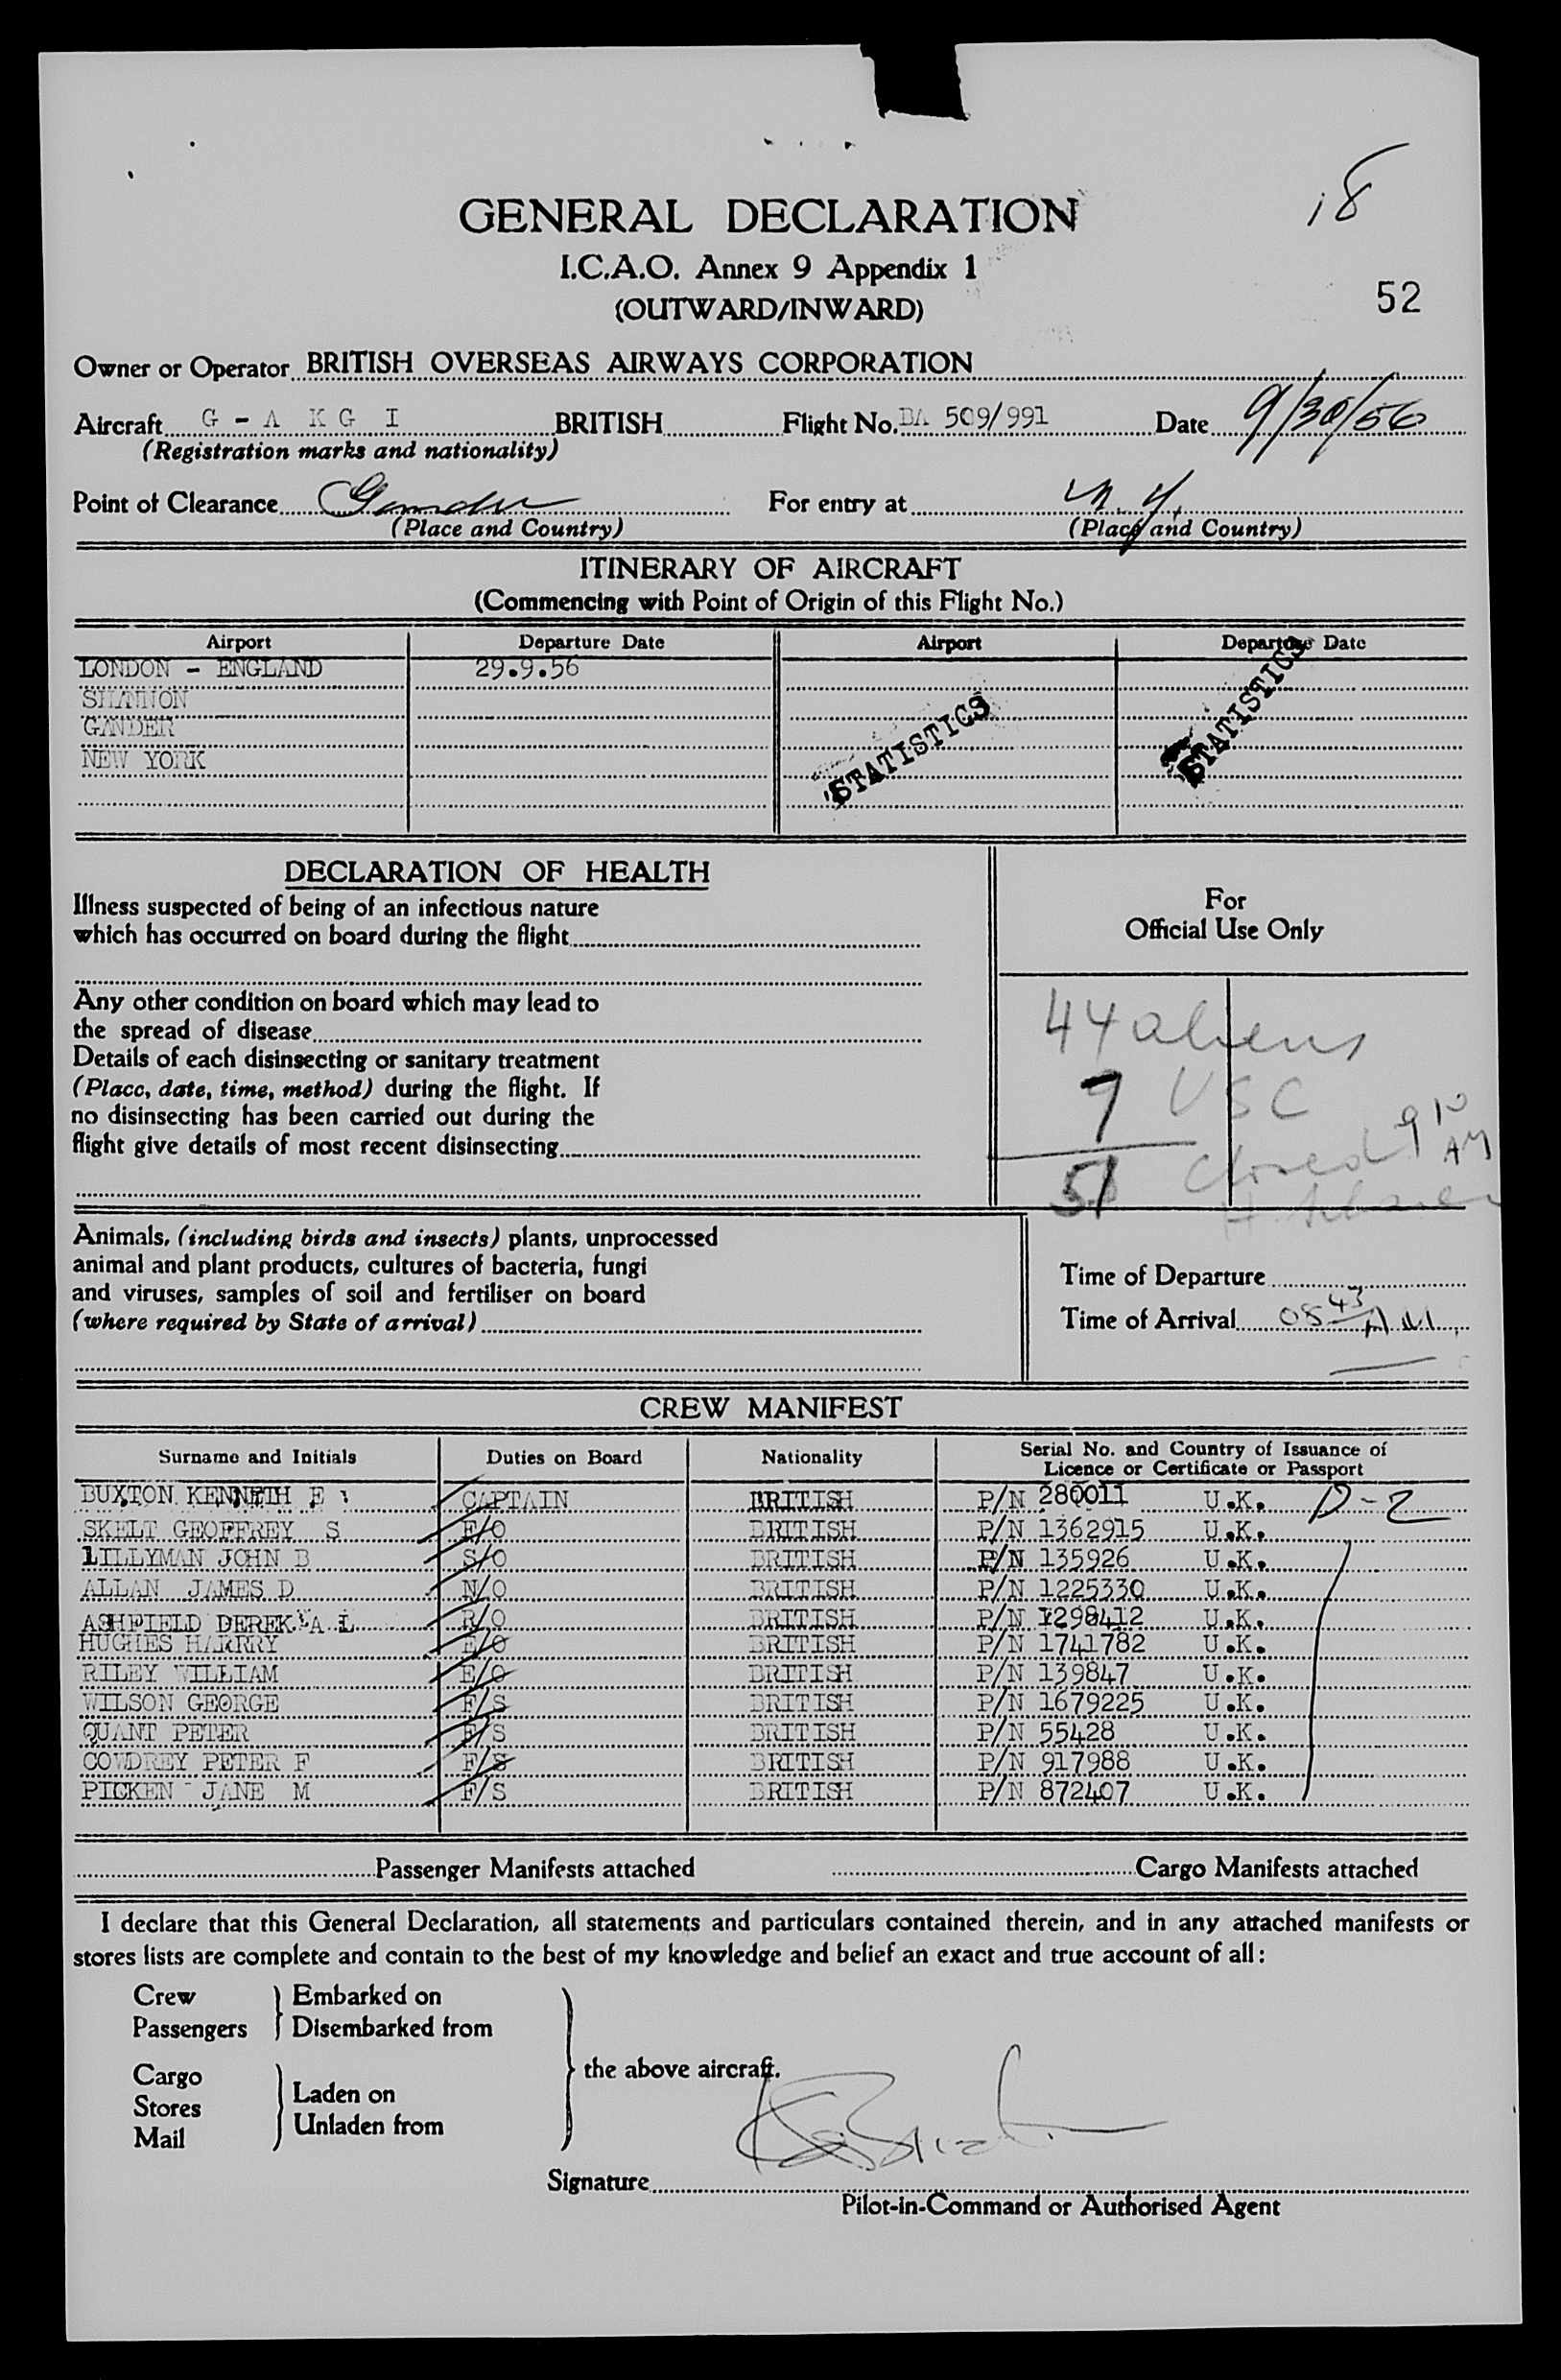 18
GENERAL DECLARATION
I.C.A.O. Annex 9 Appendix 1
(OUTWARD/INWARD)
52
Owner or Operator BRITISH OVERSEAS AIRWAYS CORPORATION
Aircraft G - A K G I BRITISH Flight No. BA 509/991 Date 9/30/56
(Registration marks and nationality)
Point of Clearance Gander For entry at N.Y.
(Place and Country) (Place and Country)
ITINERARY OF AIRCRAFT
(Commencing with Point of Origin of this Flight No.)
Airport Departure Date Airport Departure Date
LONDON - ENGLAND 29.9.56
SHANNON
GANDER
NEW YORK
STATISTICS STATISTICS
DECLARATION OF HEALTH
Illness suspected of being of an infectious nature
which has occurred on board during the flight
For
Official Use Only
Any other condition on board which may lead to
the spread of disease
Details of each disinsecting or sanitary treatment
(Place, date, time, method) during the flight. If
no disinsecting has been carried out during the
flight give details of most recent disinsecting
44 aliens
7 USC
51 Closed 9 10 AM
Animals, (including birds and insects) plants, unprocessed
animal and plant products, cultures of bacteria, fungi
and viruses, samples of soil and fertiliser on board
(where required by State of arrival)
Time of Departure
Time of Arrival 0843 AM
CREW MANIFEST
Surname and Initials Duties on Board Nationality Serial No. and Country of Issuance of Licence or Certificate or Passport
BUXTON KENNETH E CAPTAIN BRITISH P/N 280011 U.K. D-2
SKELT GEOFFREY S F/O BRITISH P/N 1362915 U.K.
LILLYMAN JOHN B S/O BRITISH P/N 135926 U.K.
ALLAN JAMES D N/O BRITISH P/N 1225330 U.K.
ASHFIELD DEREK A L R/O BRITISH P/N 1298412 U.K.
HUGHES HARRRY E/O BRITISH P/N 1741782 U.K.
RILEY WILLIAM E/O BRITISH P/N 139847 U.K.
WILSON GEORGE F/S BRITISH P/N 1679225 U.K.
QUANT PETER F/S BRITISH P/N 55428 U.K.
COWDREY PETER F F/S BRITISH P/N 917988 U.K.
PICKEN - JANE M F/S BRITISH P/N 872407 U.K.
Passenger Manifests attached Cargo Manifests attached
I declare that this General Declaration, all statements and particulars contained therein, and in any attached manifests or
stores lists are complete and contain to the best of my knowledge and belief an exact and true account of all:
Crew Embarked on
Passengers Disembarked from
the above aircraft.
Cargo
Stores Laden on
Mail Unladen from
Signature
Pilot-in-Command or Authorised Agent